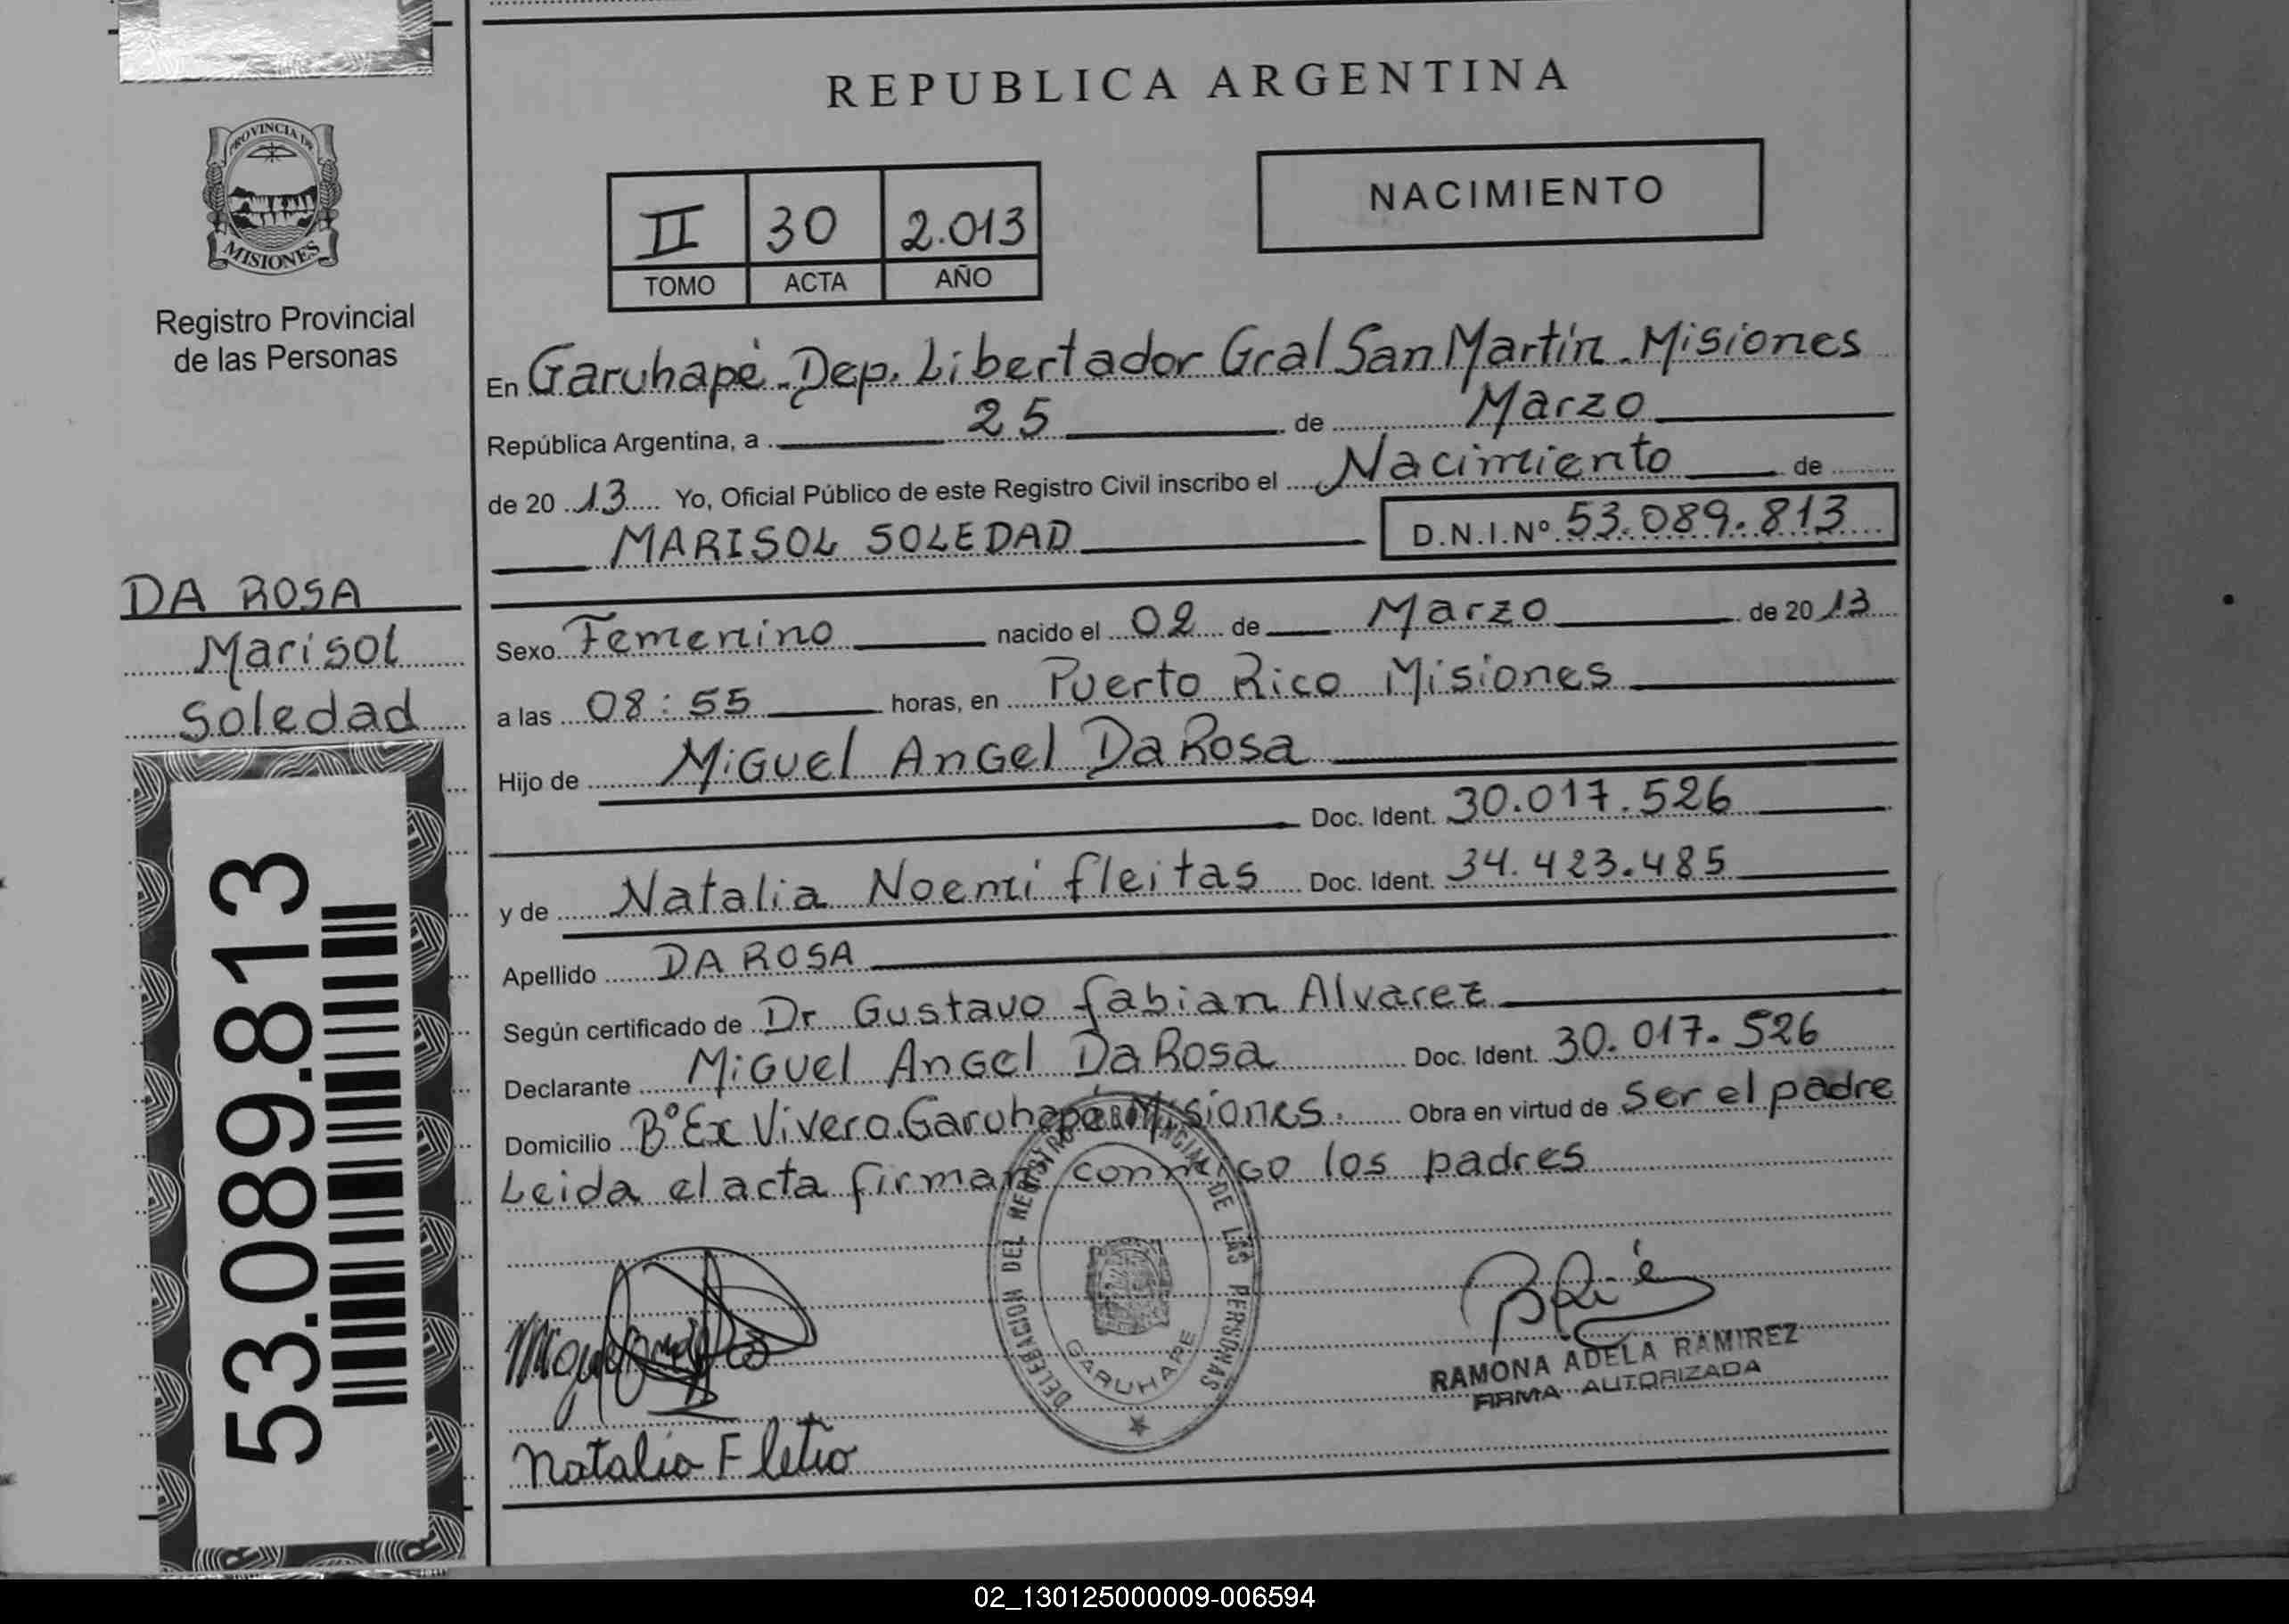 REPUBLICA ARGENTINA
PROVINCIA DE
MISIONES
Registro Provincial
de las Personas
II 30 2.013
TOMO ACTA AÑO
NACIMIENTO
En Garuhapé - Dep. Libertador Gral San Martín - Misiones
República Argentina, a 25 de Marzo
de 20 13 Yo, Oficial Público de este Registro Civil inscribo el Nacimiento de
MARISOL SOLEDAD D.N.I.Nº 53.089.813
DA ROSA
Marisol
Soledad
Sexo Femenino nacido el 02 de Marzo de 20 13
a las 08:55 horas, en Puerto Rico Misiones
Hijo de Miguel Angel Da Rosa
Doc. Ident. 30.017.526
y de Natalia Noemi fleitas Doc. Ident. 34.423.485
Apellido DA ROSA
Según certificado de Dr Gustavo fabian Alvarez
Declarante Miguel Angel Da Rosa Doc. Ident. 30.017.526
Domicilio Bº Ex Vivero. Garuhapé Misiones. Obra en virtud de ser el padre
Leida el acta firman conmigo los padres
53.089.813
DELEGACION DEL REGISTRO PROVINCIAL DE LAS PERSONAS
GARUHAPE
RAMONA ADELA RAMIREZ
FIRMA AUTORIZADA
Natalia
02_130125000009-006594